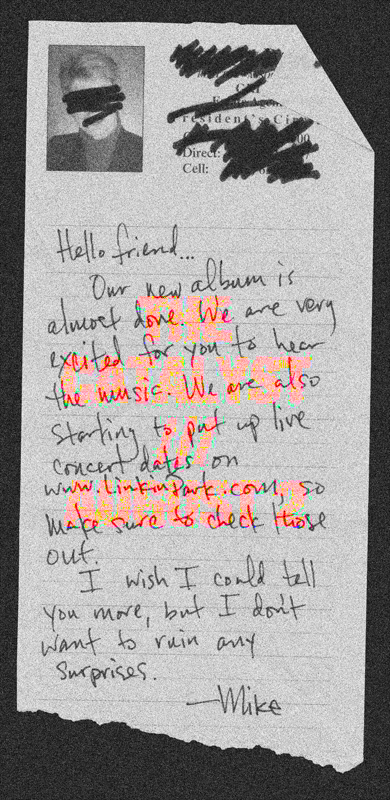 resident's Cir
Direct:
Cell:
Hello friend...
Our new album is
almost done. We are very
excited for you to hear
the music. We are also
starting to put up live
concert dates on
www.LinkinPark.com, so
make sure to check those
out.
I wish I could tell
you more, but I don't
want to ruin any
surprises.
—Mike
THE
CATALYST